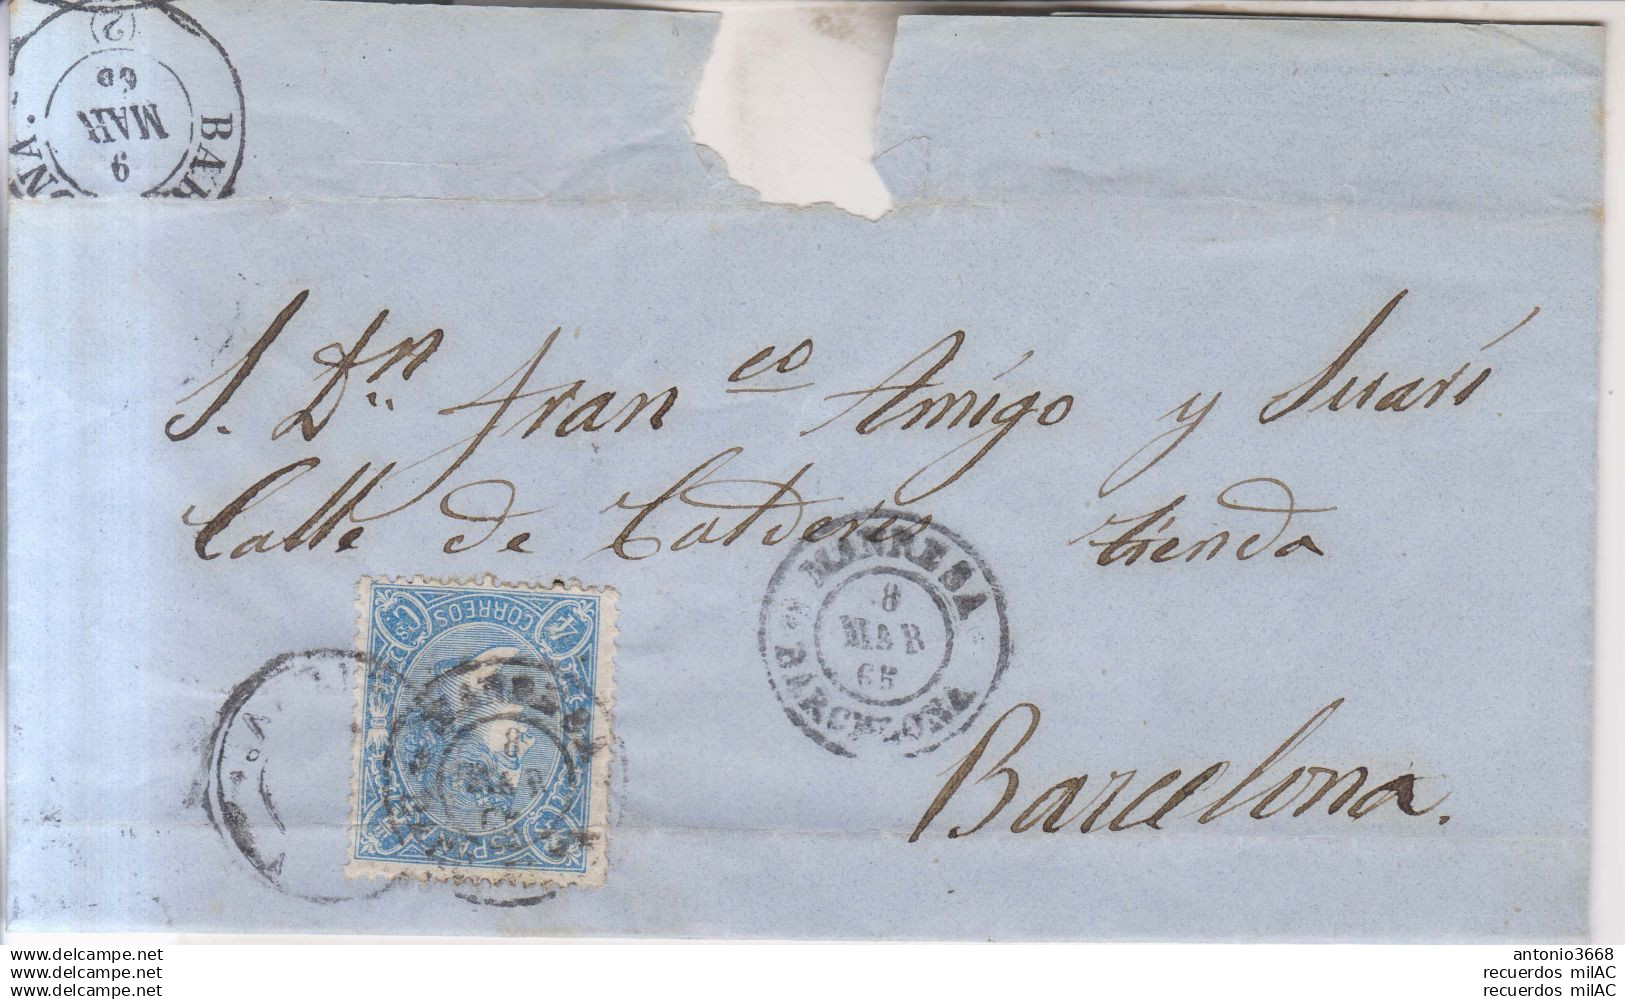 BAR NA.
(2)
9
MAR
65
S. Dn Fran co Amigo y Suari
Calle de Calderes tienda
MANRESA
8
MAR
65
BARCELONA
4 Cs
CORREOS
ESPAÑA
8
Barcelona.
www.delcampe.net
www.delcampe.net
www.delcampe.net
antonio3668
recuerdos milAC
recuerdos milAC